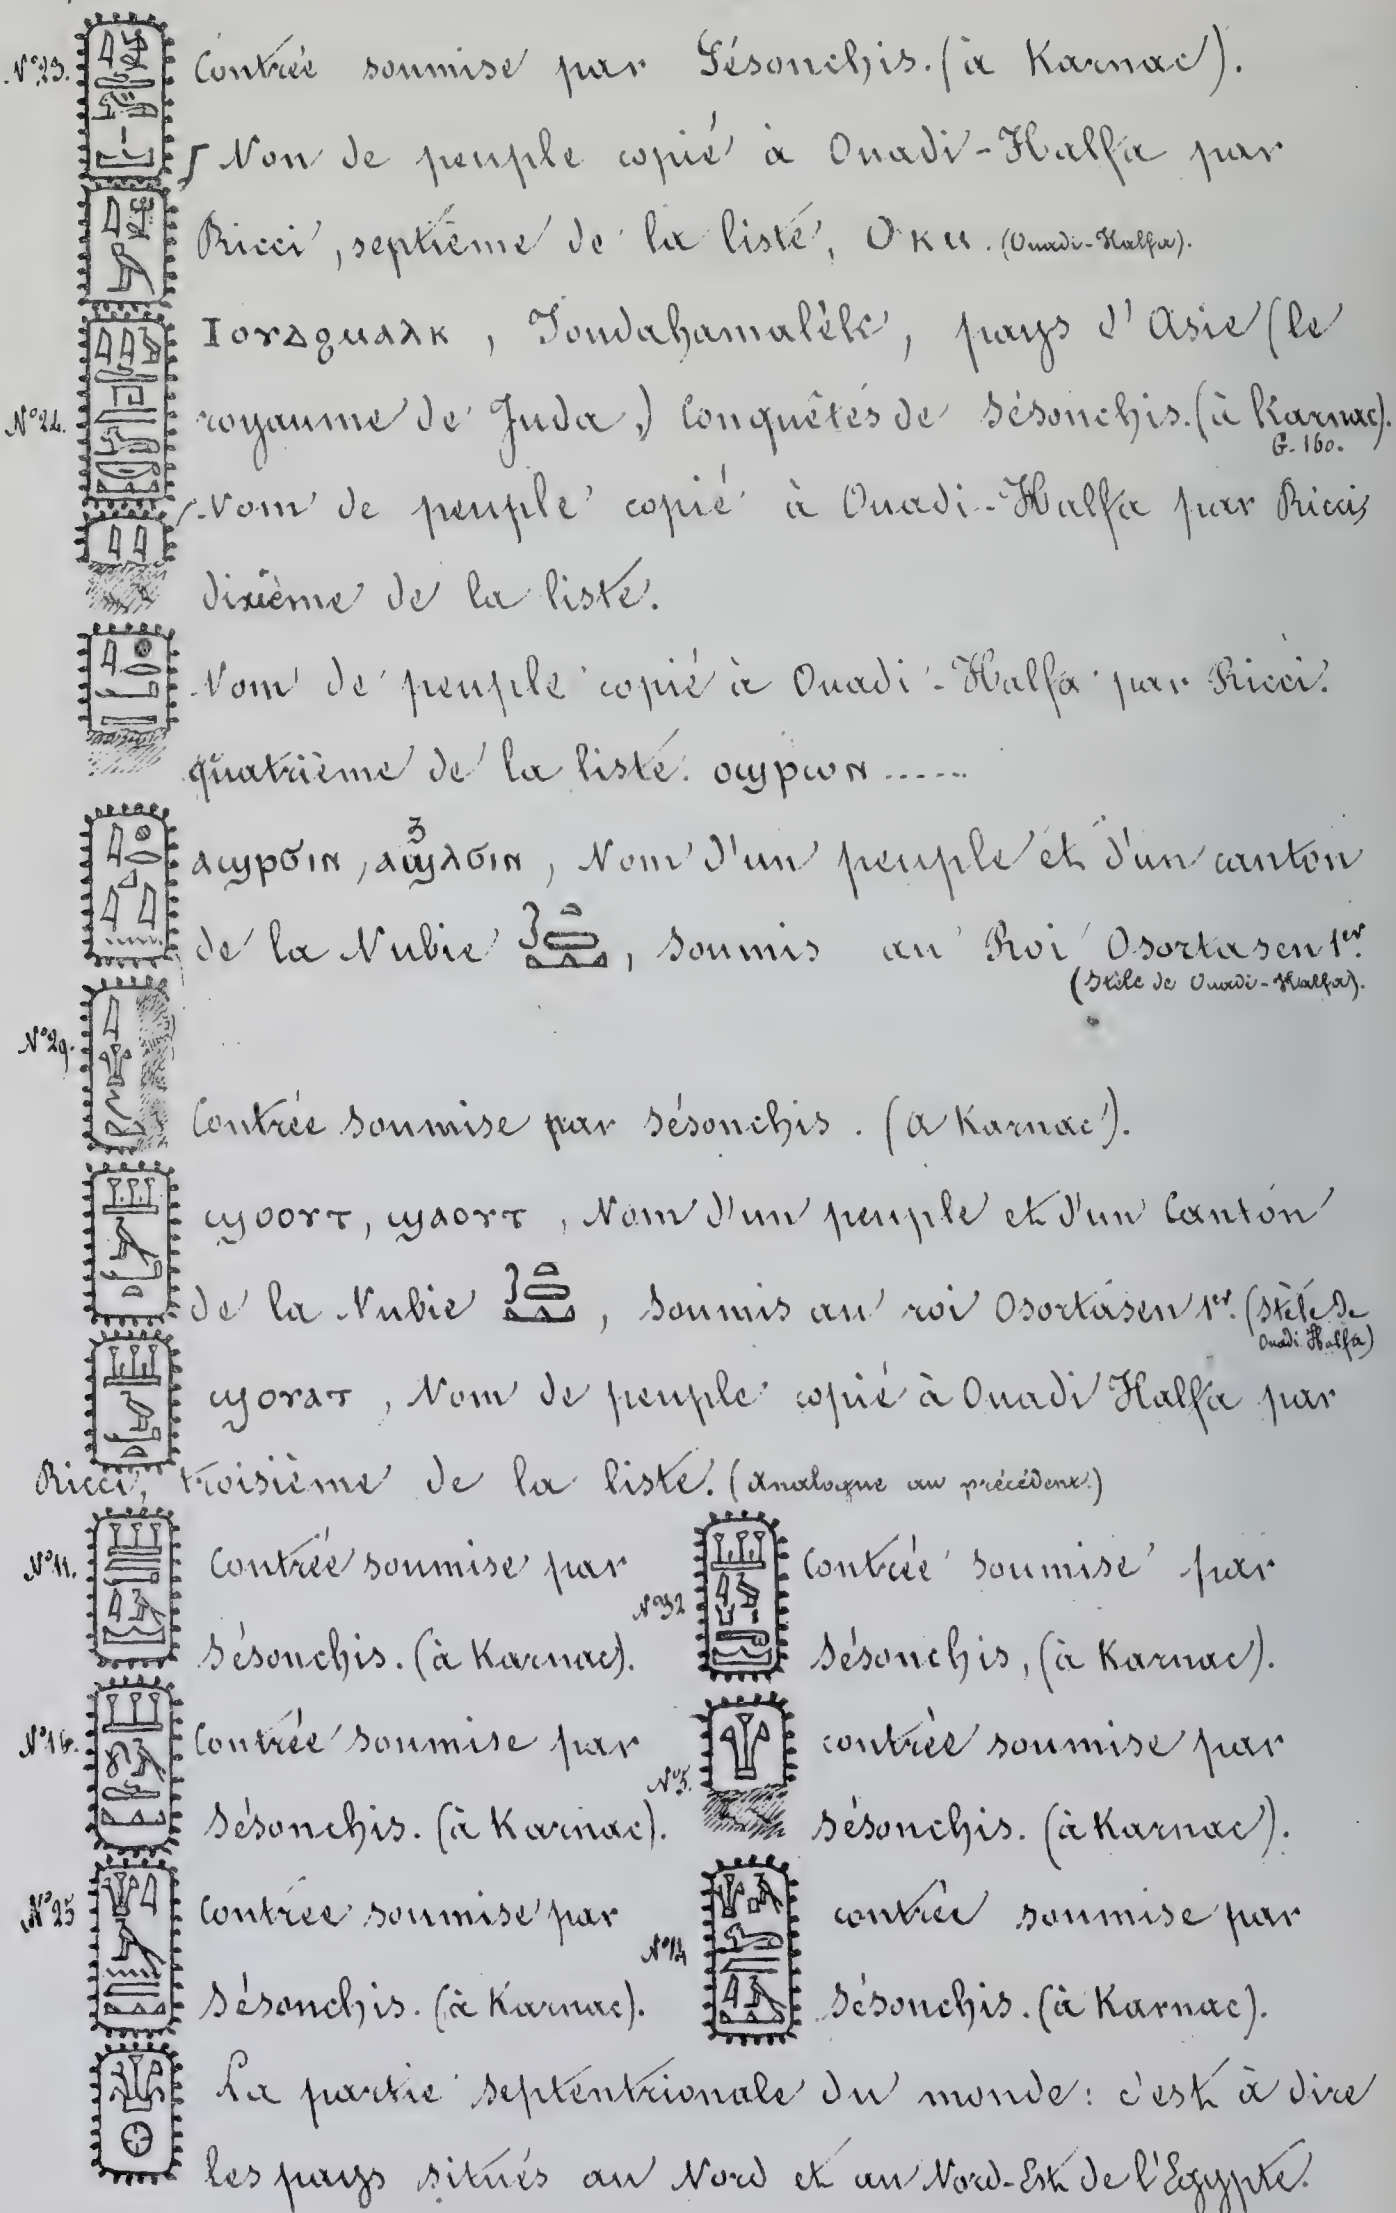 N° 23. Contrée soumise par Sésonchis. (à Karnac).
Non de peuple copié à Ouadi-Halfa par
Ricci, septième de la liste, (Ouadi-Halfa).
Ⲓⲟⲩⲇϩⲙⲁⲗⲕ, Joudahamalék, pays d'Asie (le
N° 24. royaume de Juda,) Conquêtes de Sésonchis. (à Karnac).
G. 160.
Nom de peuple copié à Ouadi-Halfa par Ricci,
dixième de la liste.
Nom de peuple copié à Ouadi-Halfa par Ricci.
quatrième de la liste. ⲟϣⲣⲱⲛ......
ⲁϣⲣϭⲓⲛ, ⲁϣⲗϭⲓⲛ, Nom d'un peuple et d'un canton
de la Nubie, soumis au Roi Osortasen 1er.
(Stèle de Ouadi-Halfa).
N° 29.
Contrée soumise par Sésonchis. (à Karnac).
ϣⲟⲟⲩⲧ, ϣⲁⲟⲩⲧ, Nom d'un peuple et d'un Canton
de la Nubie, soumis au roi Osortasen 1er. (Stèle de
Ouadi Halfa)
ϣⲟⲩⲁⲧ, Nom de peuple copié à Ouadi Halfa par
Ricci, troisième de la liste. (Analogue au précédent.)
N° 11. Contrée soumise par
Sésonchis. (à Karnac).
N° 32 Contrée soumise par
Sésonchis, (à Karnac).
N° 16. Contrée soumise par
Sésonchis. (à Karnac).
N° 5. contrée soumise par
sésonchis. (à Karnac).
N° 25 Contrée soumise par
Sésonchis. (à Karnac).
contrée soumise par
Sésonchis. (à Karnac).
La partie septentrionale du monde: c'est à dire
les pays situés au Nord et au Nord-Est de l'Egypte.